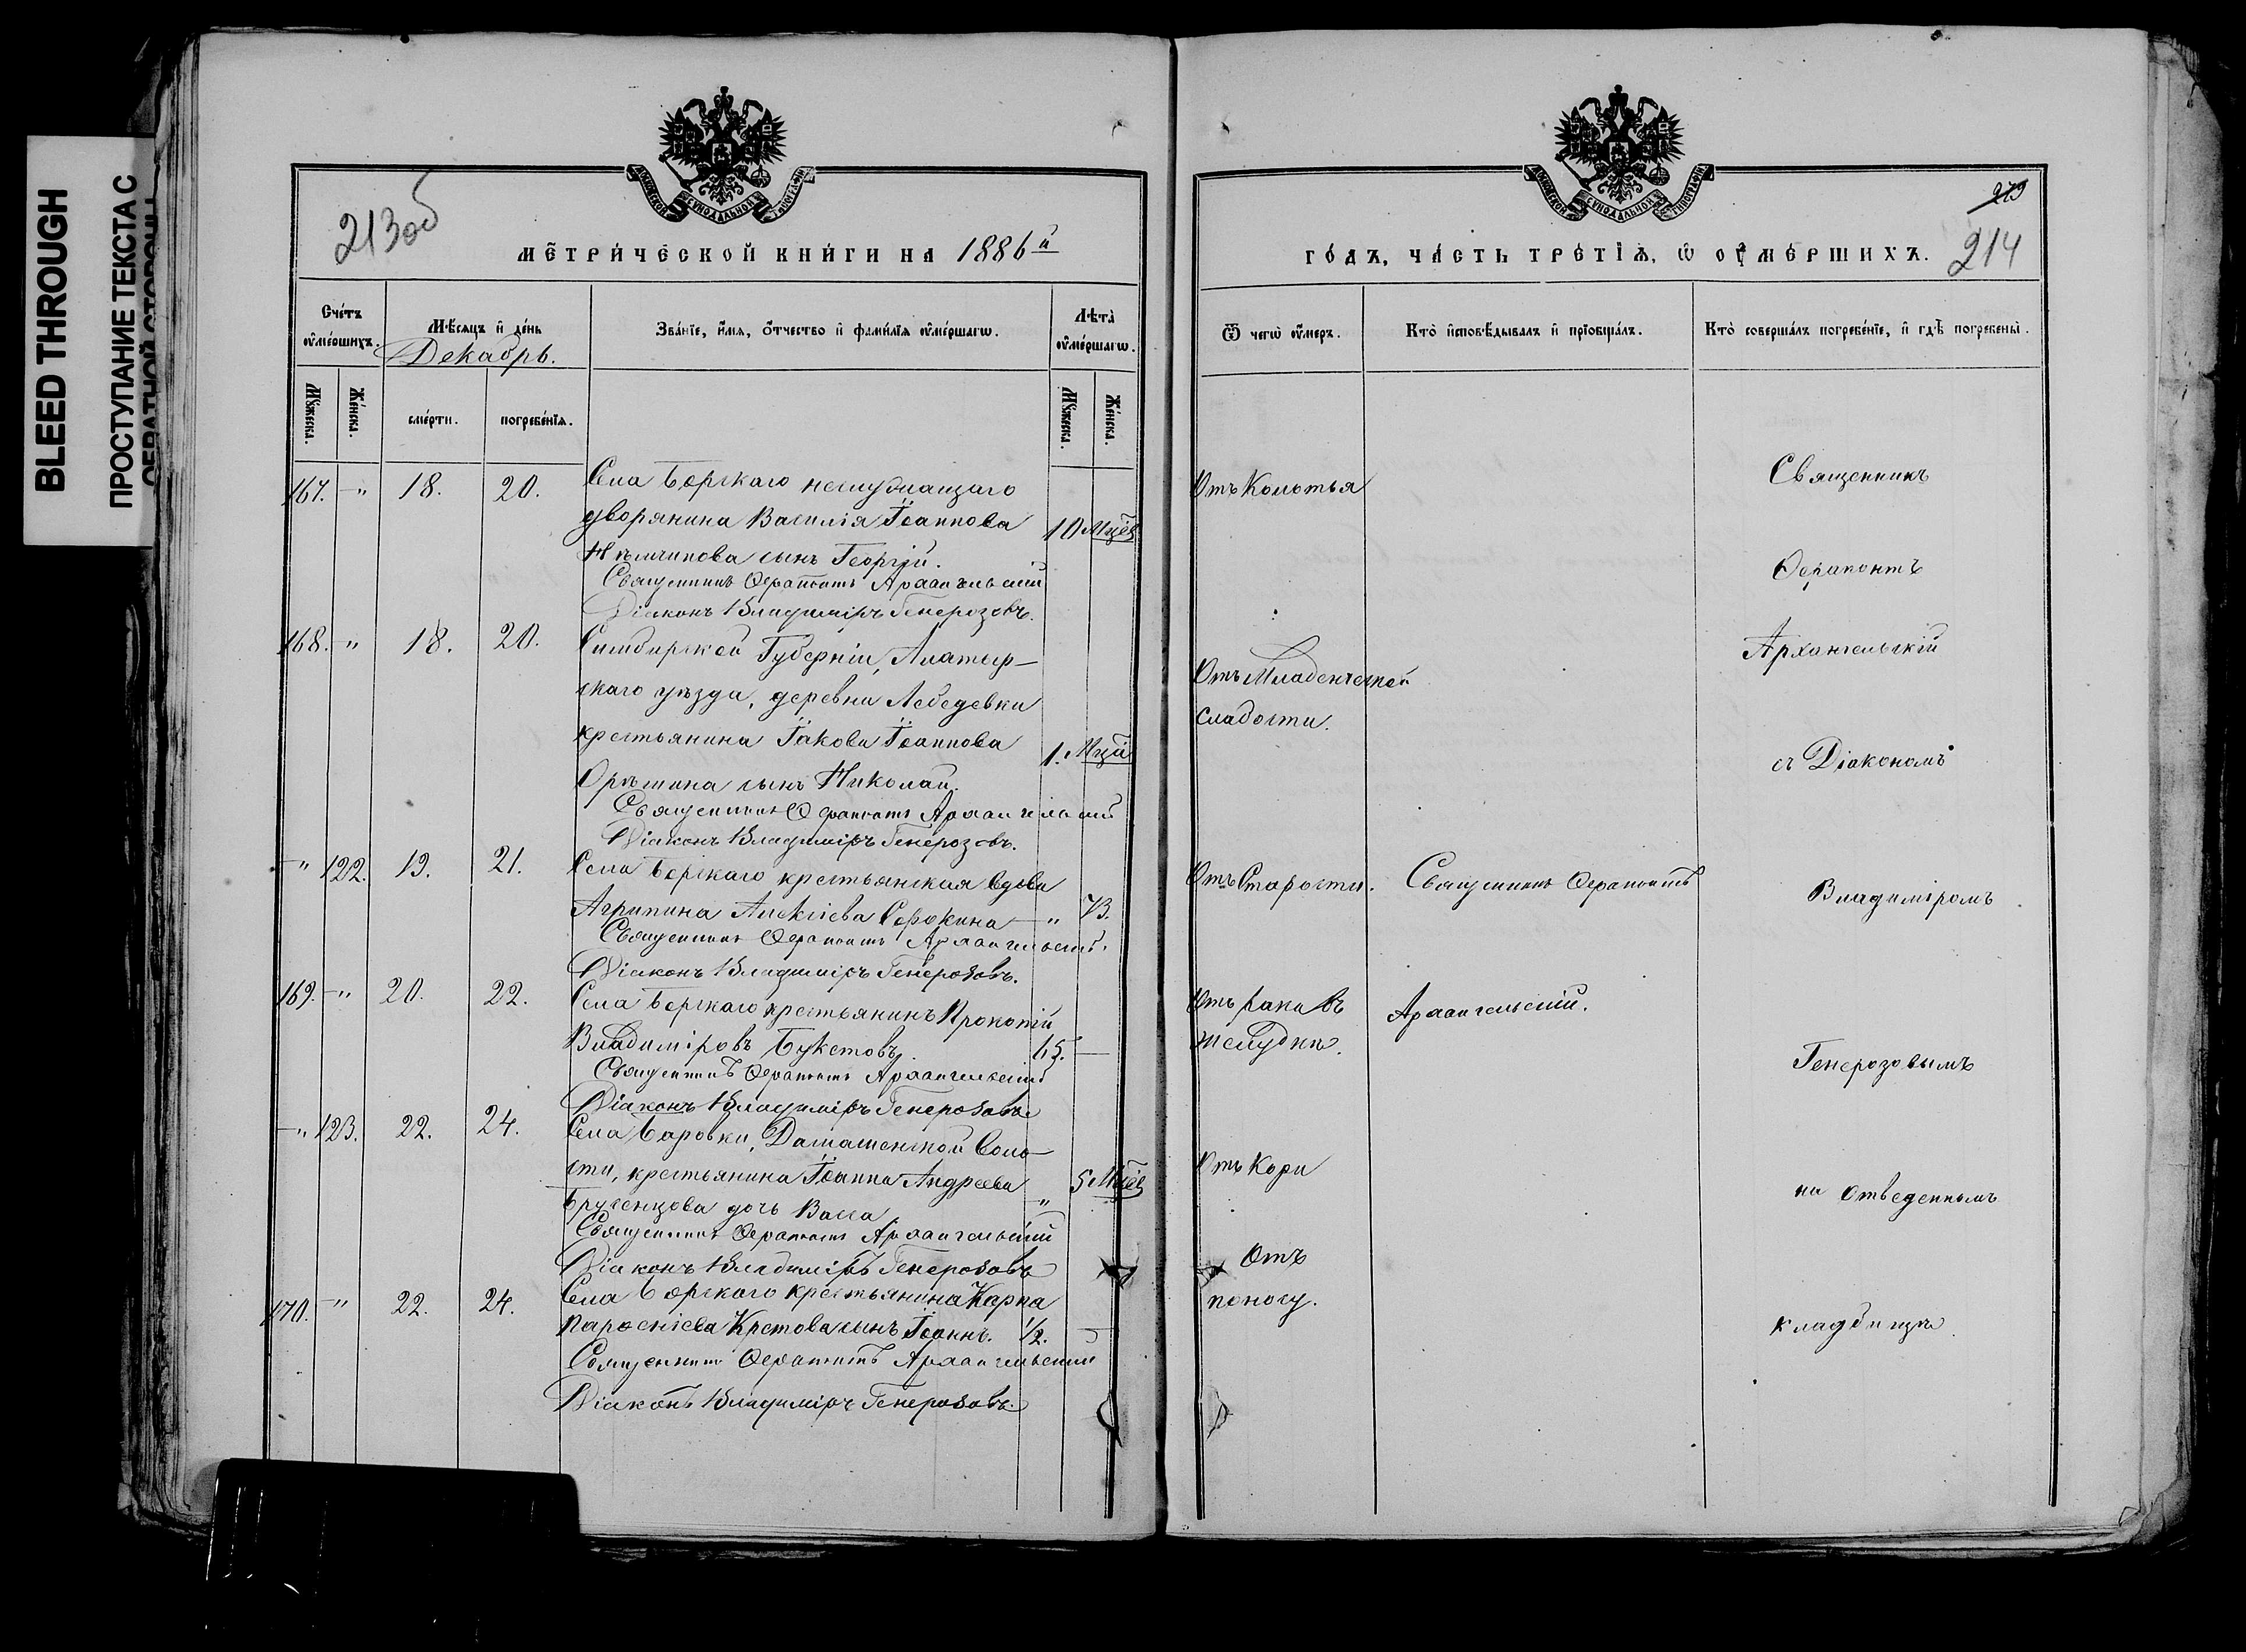 BLEED THROUGH
ПРОСТУПАНИЕ ТЕКСТА С
ОБРАТНОЙ СТОРОНЫ
213об
МЕТРИЧЕСКОЙ КНИГИ НА 1886й
Счетъ умершихъ.
Мѣсяцъ и день
Декабрь.
Званіе, имя, отчество и фамилія умершаго.
Лѣта умершаго.
Мужеска.
Женска.
смерти.
погребенія.
Мужеска.
Женска.
167. " 18. 20. Села Борскаго неслужащаго
дворянина Василія Іоаннова 10 Мцѣв
Нѣмчинова сынъ Георгій.
Священникъ Ѳерапонтъ Архангельскій
Діаконъ Владиміръ Генерозовъ.
168. " 18. 20. Симбирской Губерніи, Алатыр-
скаго уѣзда, деревни Лебедевки
крестьянина Іакова Іоаннова 1. Мца
Орѣшина сынъ Николай.
Священникъ Ѳерапонтъ Архангельскій
Діаконъ Владиміръ Генерозовъ.
" 122. 19. 21. Села Борскаго крестьянская вдова
Агрипина Алексіева Сорокина " 73.
Священникъ Ѳерапонтъ Архангельскій.
Діаконъ Владиміръ Генерозовъ.
169. " 20. 22. Села Борскаго крестьянинъ Прокопій
Владиміровъ Букетовъ.
Священникъ Ѳерапонтъ Архангельскій
Діаконъ Владиміръ Генерозовъ
" 123. 22. 24. Села Боровки, воло-
сти, крестьянина Іоанна Андреева 5 Мцѣв
Брусенцова дочь Васса "
Священникъ Ѳерапонтъ Архангельскій
Діаконъ Владиміръ Генерозовъ
170. " 22. 24. Села Борского крестьянина Карпа
Парѳеніева Кретова сынъ Іоаннъ. 1/2.
Священникъ Ѳерапонтъ Архангельскій
Діаконъ Владиміръ Генерозовъ.
ГОДЪ, ЧАСТЬ ТРЕТІЯ, Ѡ УМЕРШИХЪ.
213
214
Ѿ чего умеръ.
Кто исповѣдывалъ и пріобщалъ.
Кто совершалъ погребеніе, и гдѣ погребены.
Отъ Колотья
Священникъ
Ѳерапонтъ
Архангельскій
Отъ Младенческой
слабости.
съ Діакономъ
Отъ Старости. Священникъ Ѳерапонтъ
Владиміромъ
Отъ рака въ Архангельскій.
желудкѣ.
Генерозовымъ
Отъ Кори
на отведенномъ
Отъ
поносу.
кладбищѣ